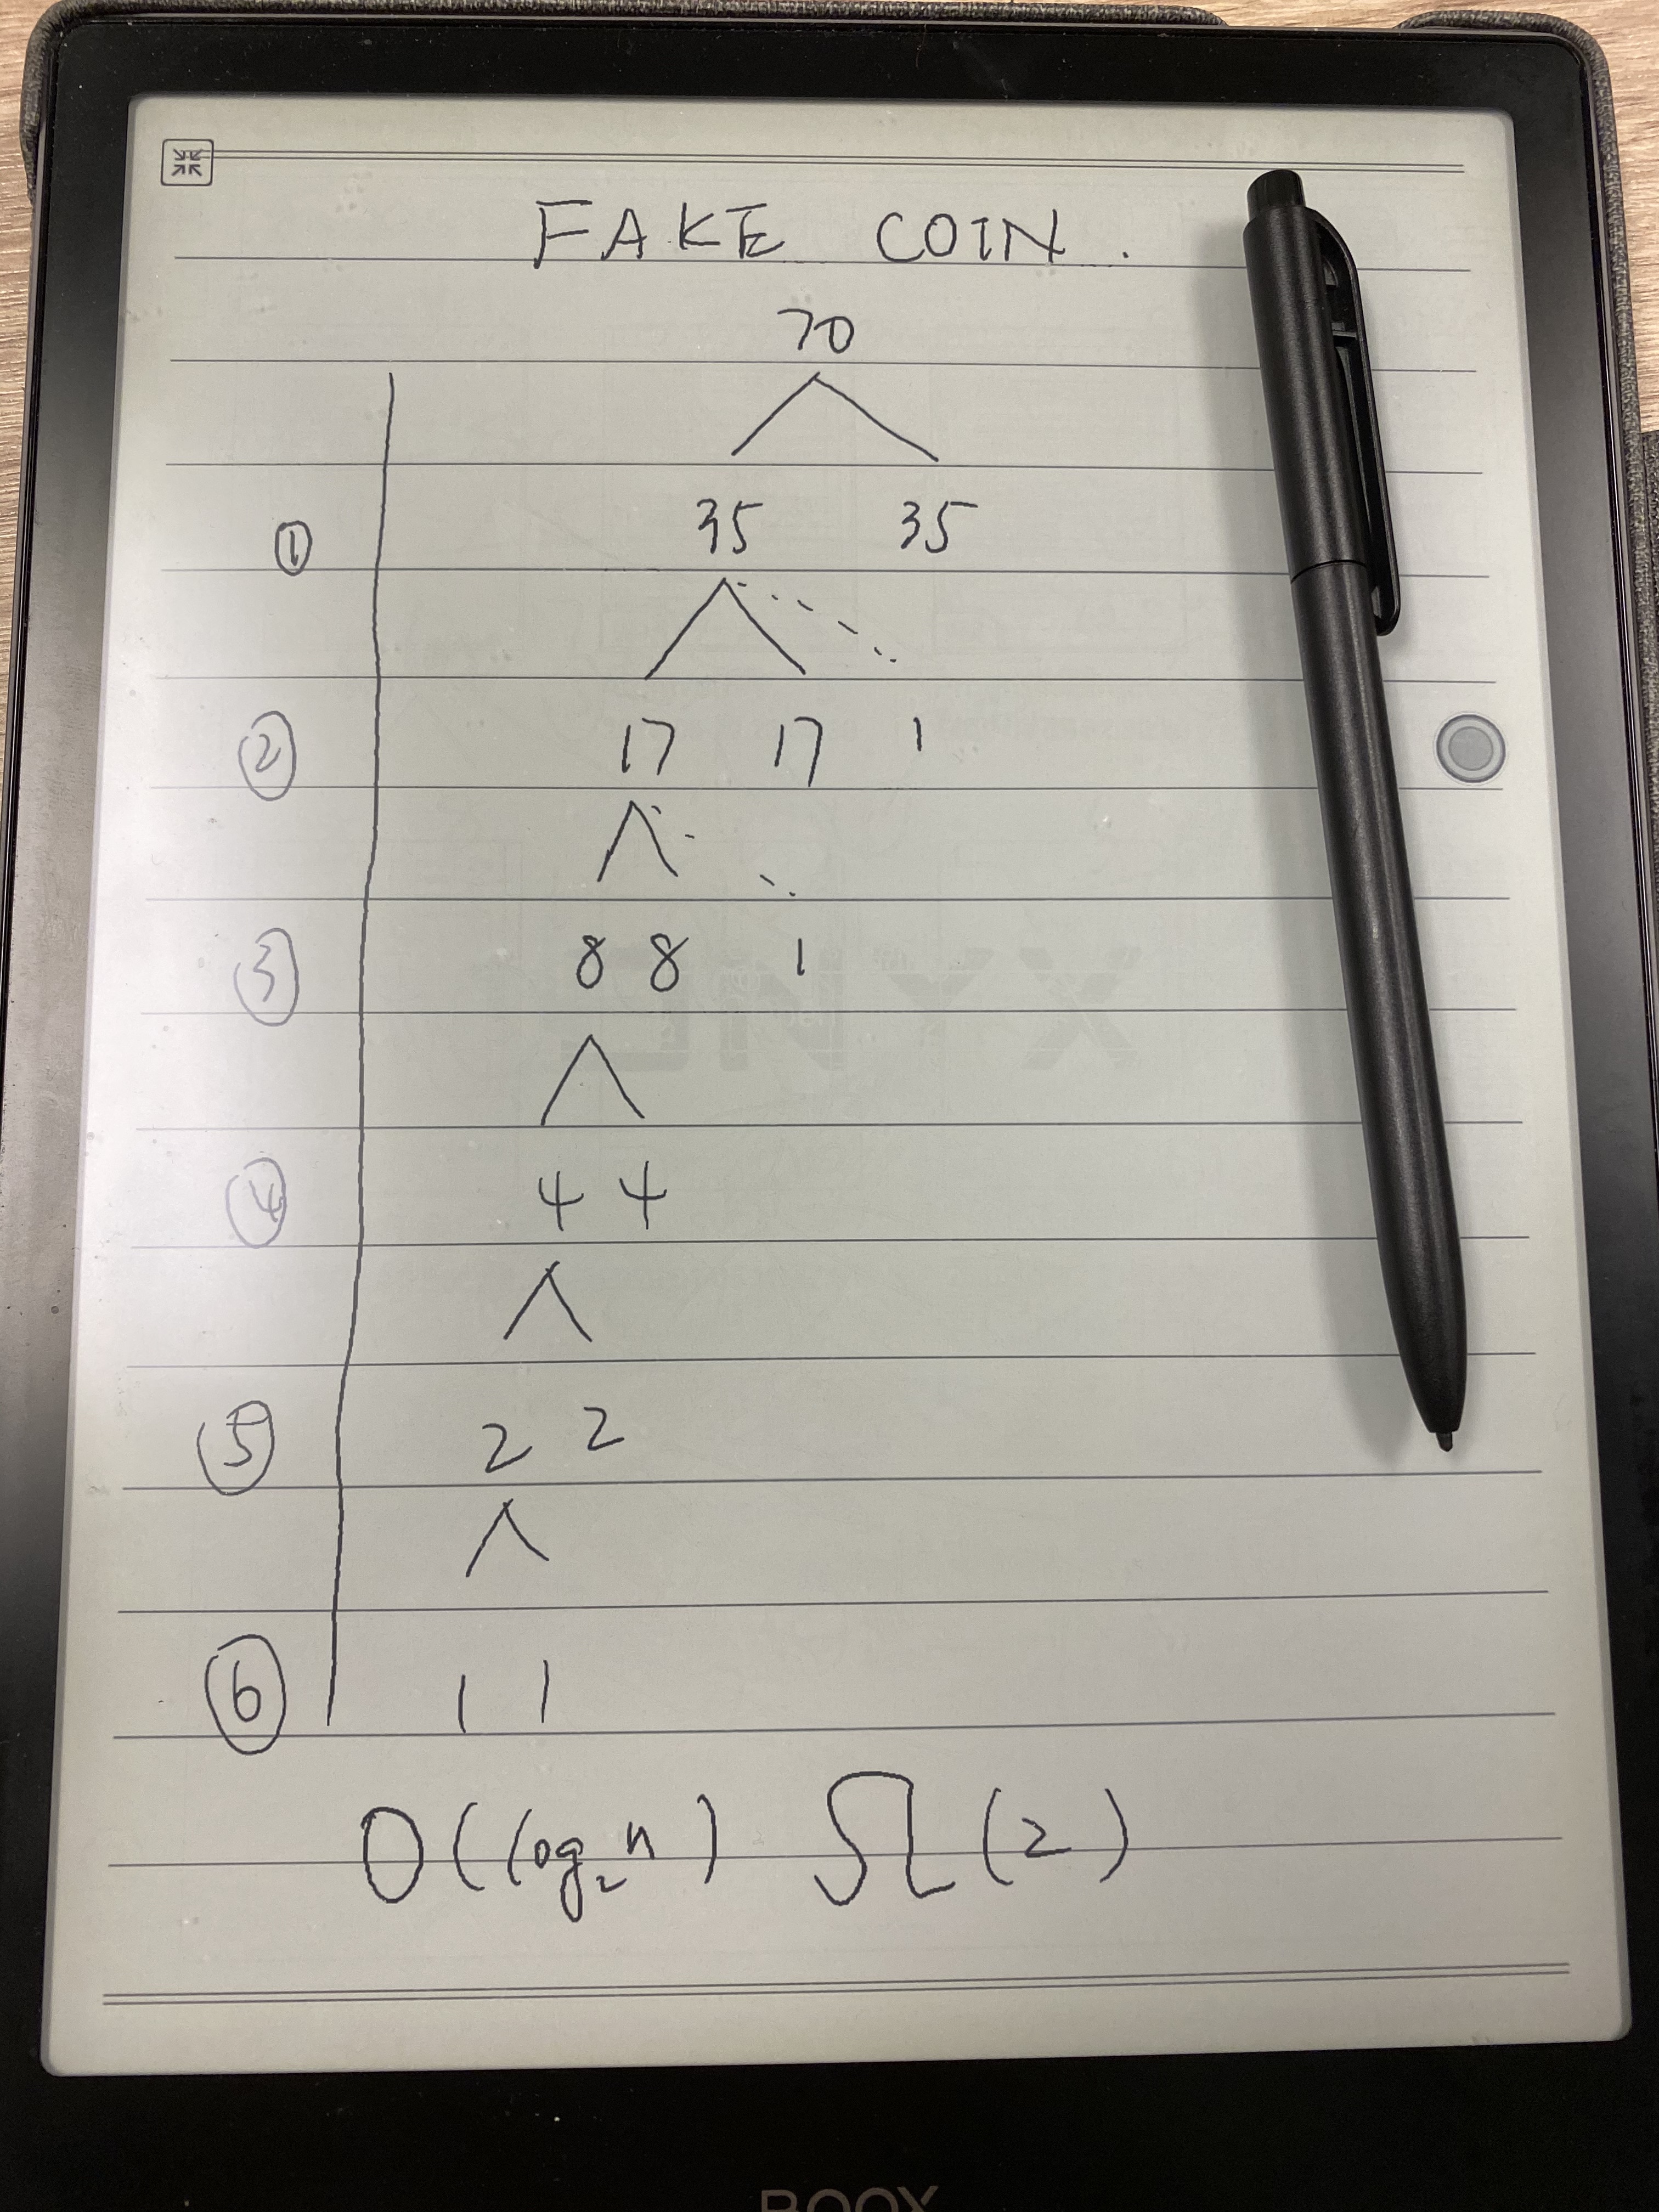 FAKE COIN.
70
① 35 35
② 17 17 1
③ 8 8 1
④ 4 4
⑤ 2 2
⑥ 1 1
O(log₂n) Ω(2)
BOOX